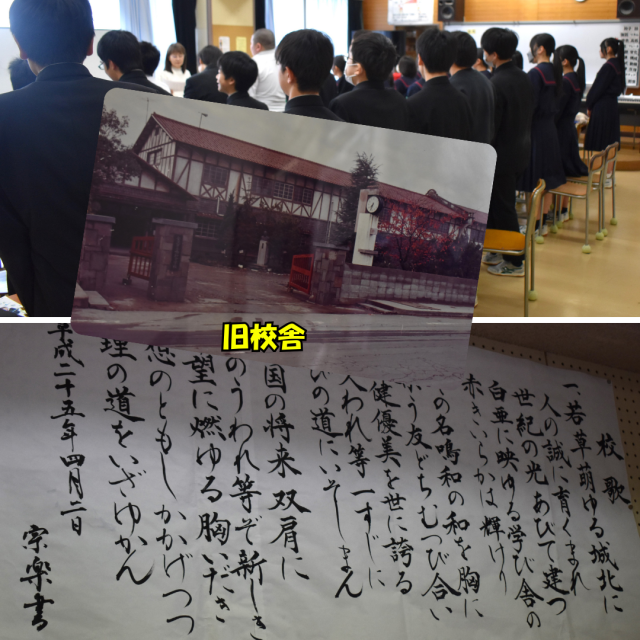 旧校舎
校歌
一、若草萌ゆる城北に
人の誠に育くまれ
世紀の光あびて建つ
白亜に映ゆる学び舎の
赤きいらかは輝けり
の名鳴和の和を胸に
う友どちむつび合い
健優美を世に誇る
われ等一すじに
の道にいそしまん
国の将来双肩に
のうわれ等ぞ新しき
望に燃ゆる胸いだき
想のともしかかげつつ
理の道をいざゆかん
平成二十五年四月二日
宗楽書